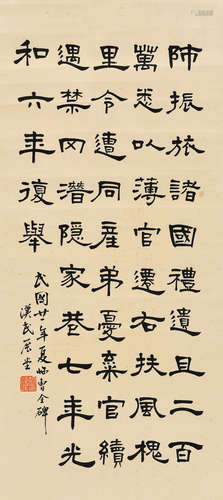 師振旅諸國禮遺且二百
萬悉以薄官遷右扶風槐
里令遭同產弟憂棄官續
遇禁网潛隱家巷七年光
和六年復舉
民國廿年夏臨曹全碑
漢民展堂